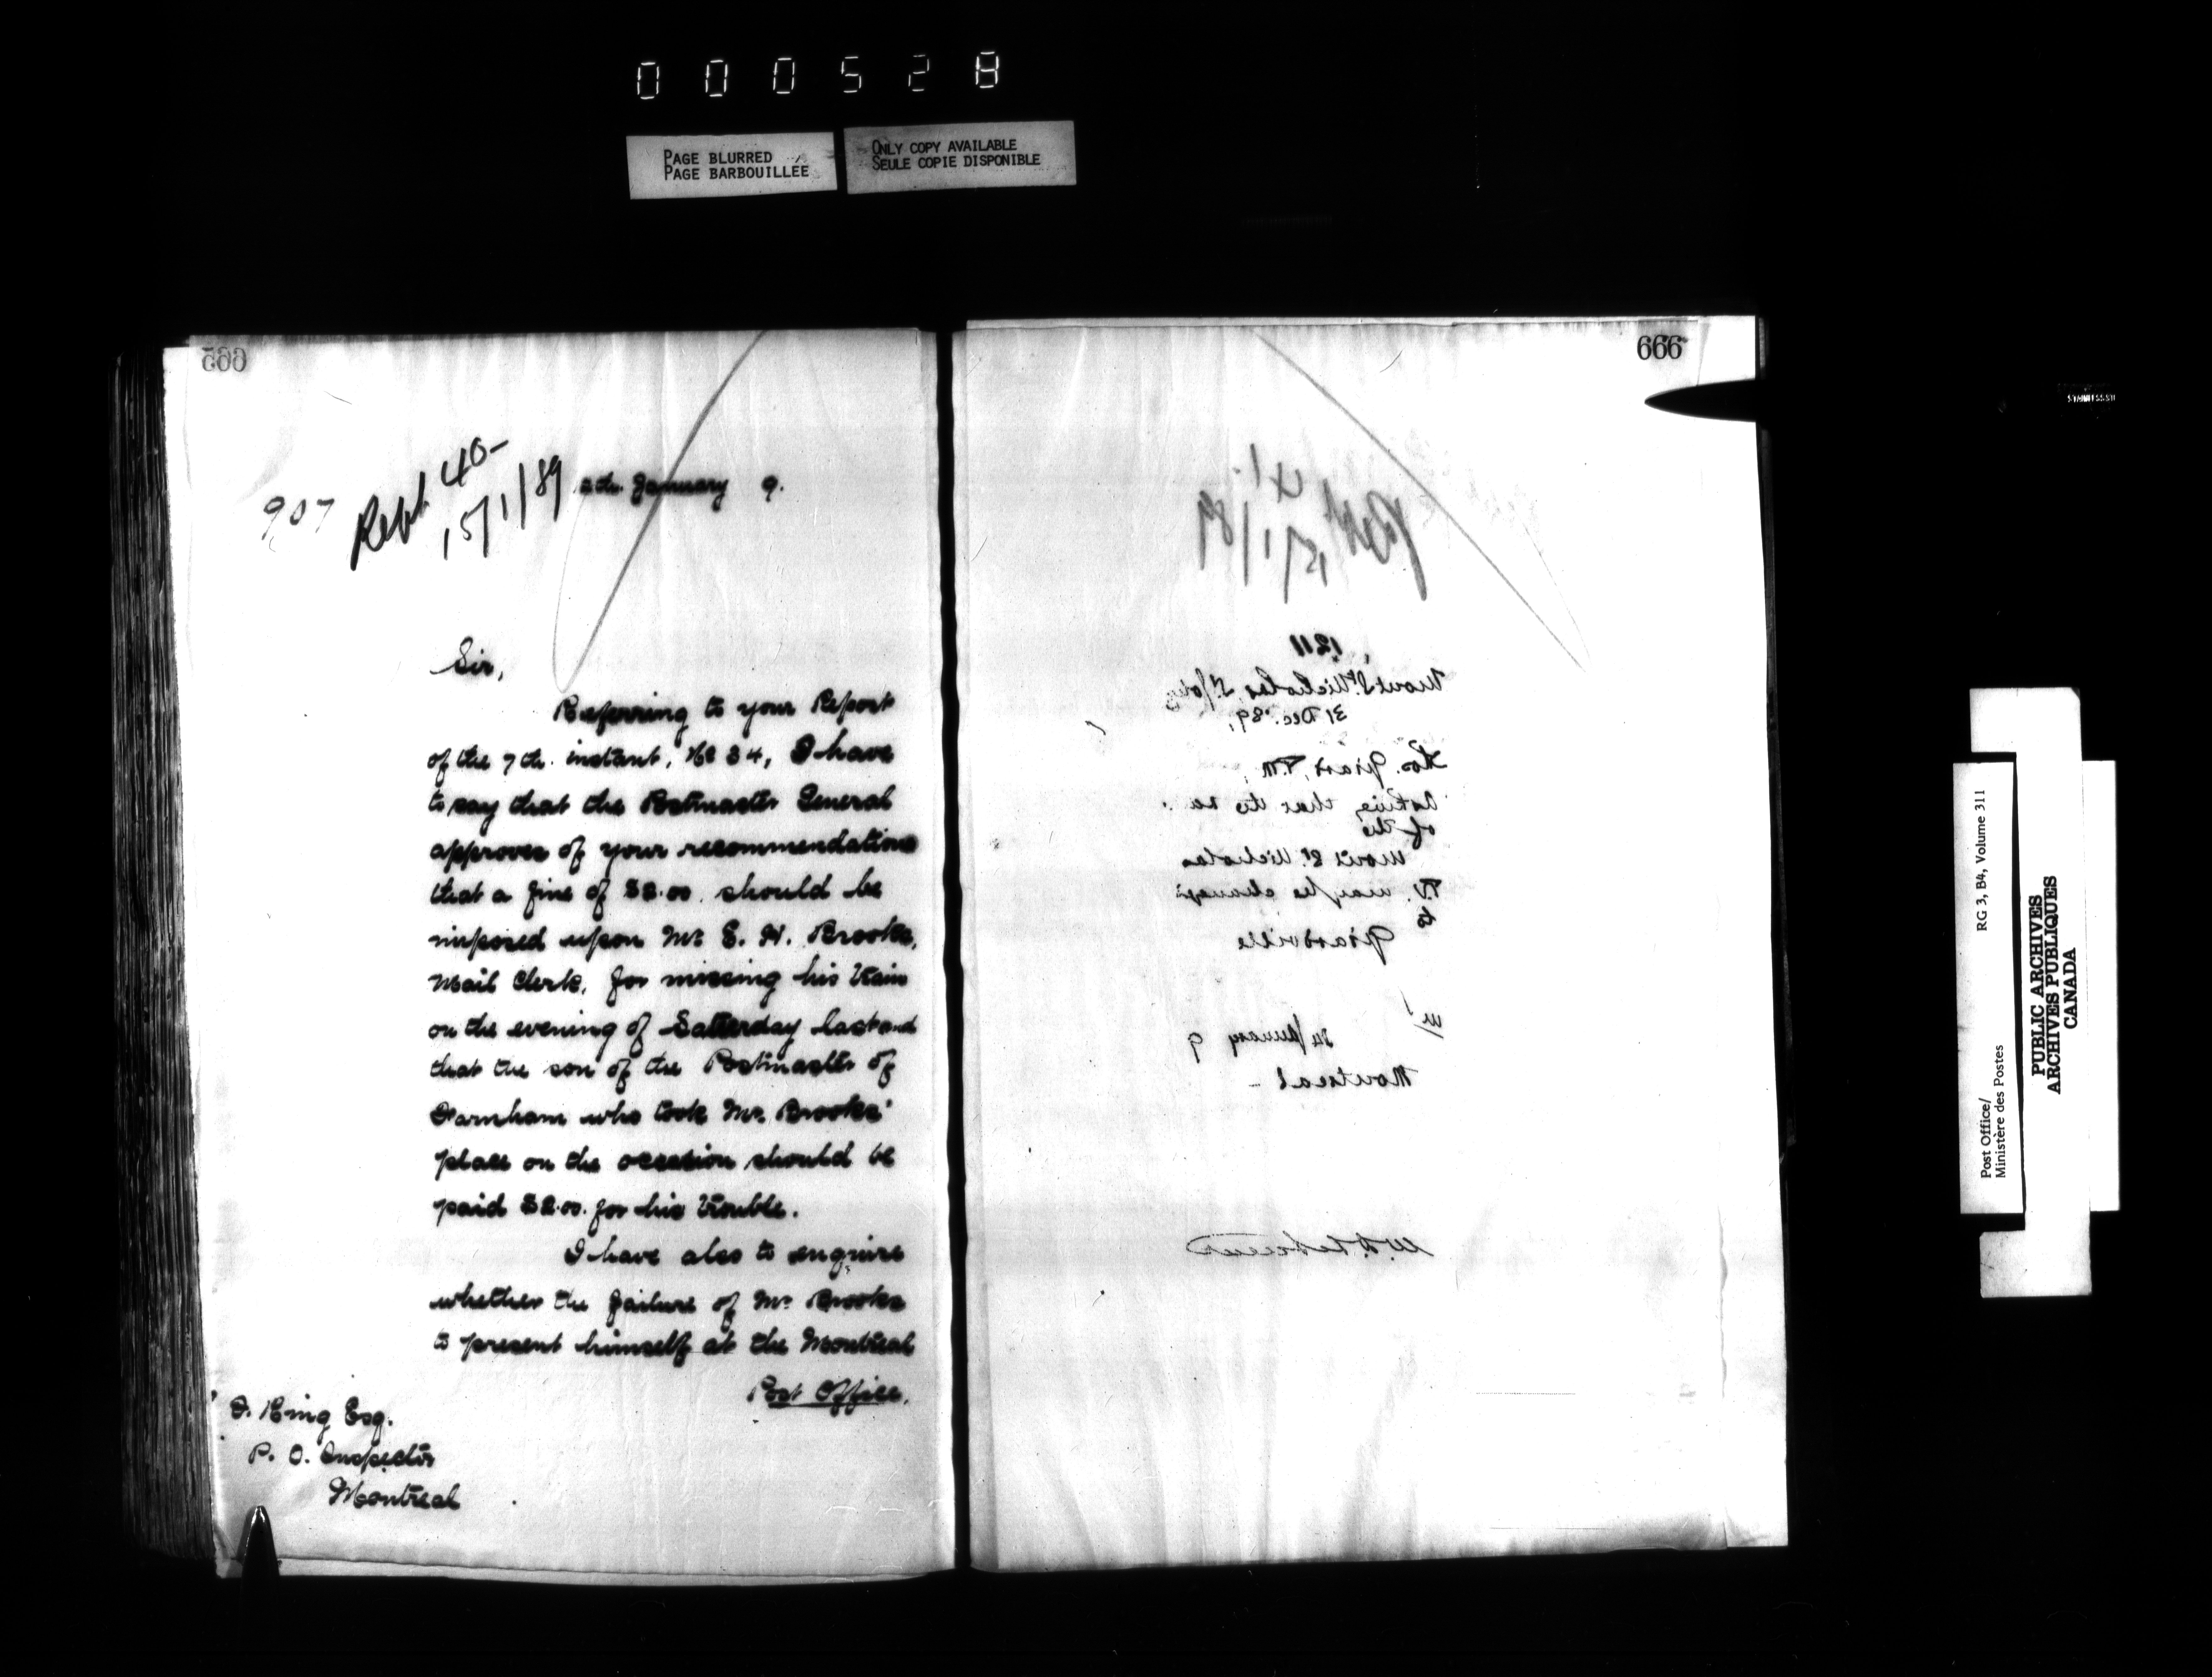 000528
PAGE BLURRED
PAGE BARBOUILLÉE
ONLY COPY AVAILABLE
SEULE COPIE DISPONIBLE
665
907
40-
15/1/89
January 9.
Sir,
Referring to your Report
of the 7th. instant, No 34, I have
to say that the Postmaster General
approves of your recommendations
that a fine of $2.00. should be
imposed upon Mr. E. H. Brooke,
Mail Clerk, for missing his train
on the evening of Satterday last and
that the son of the Postmaster of
Farnham who took Mr. Brooke's
place on the occasion should be
paid $2.00. for his trouble.
I have also to enquire
whether the failure of Mr. Brooke
to present himself at the Montreal
Post Office.
King Esq.
P. O. Inspector
Montreal
666
41.
15/1/89
1211
Mont St. Nicholas
31 Dec. '89,
Girard, P.M.,
Asking that the
of the
Mont St. Nicholas
P.O. may be changed
to
Girardville
January 9
Montreal -
STAINLESS STEEL
Post Office/
Ministère des Postes
RG 3, B4, Volume 311
PUBLIC ARCHIVES
ARCHIVES PUBLIQUES
CANADA